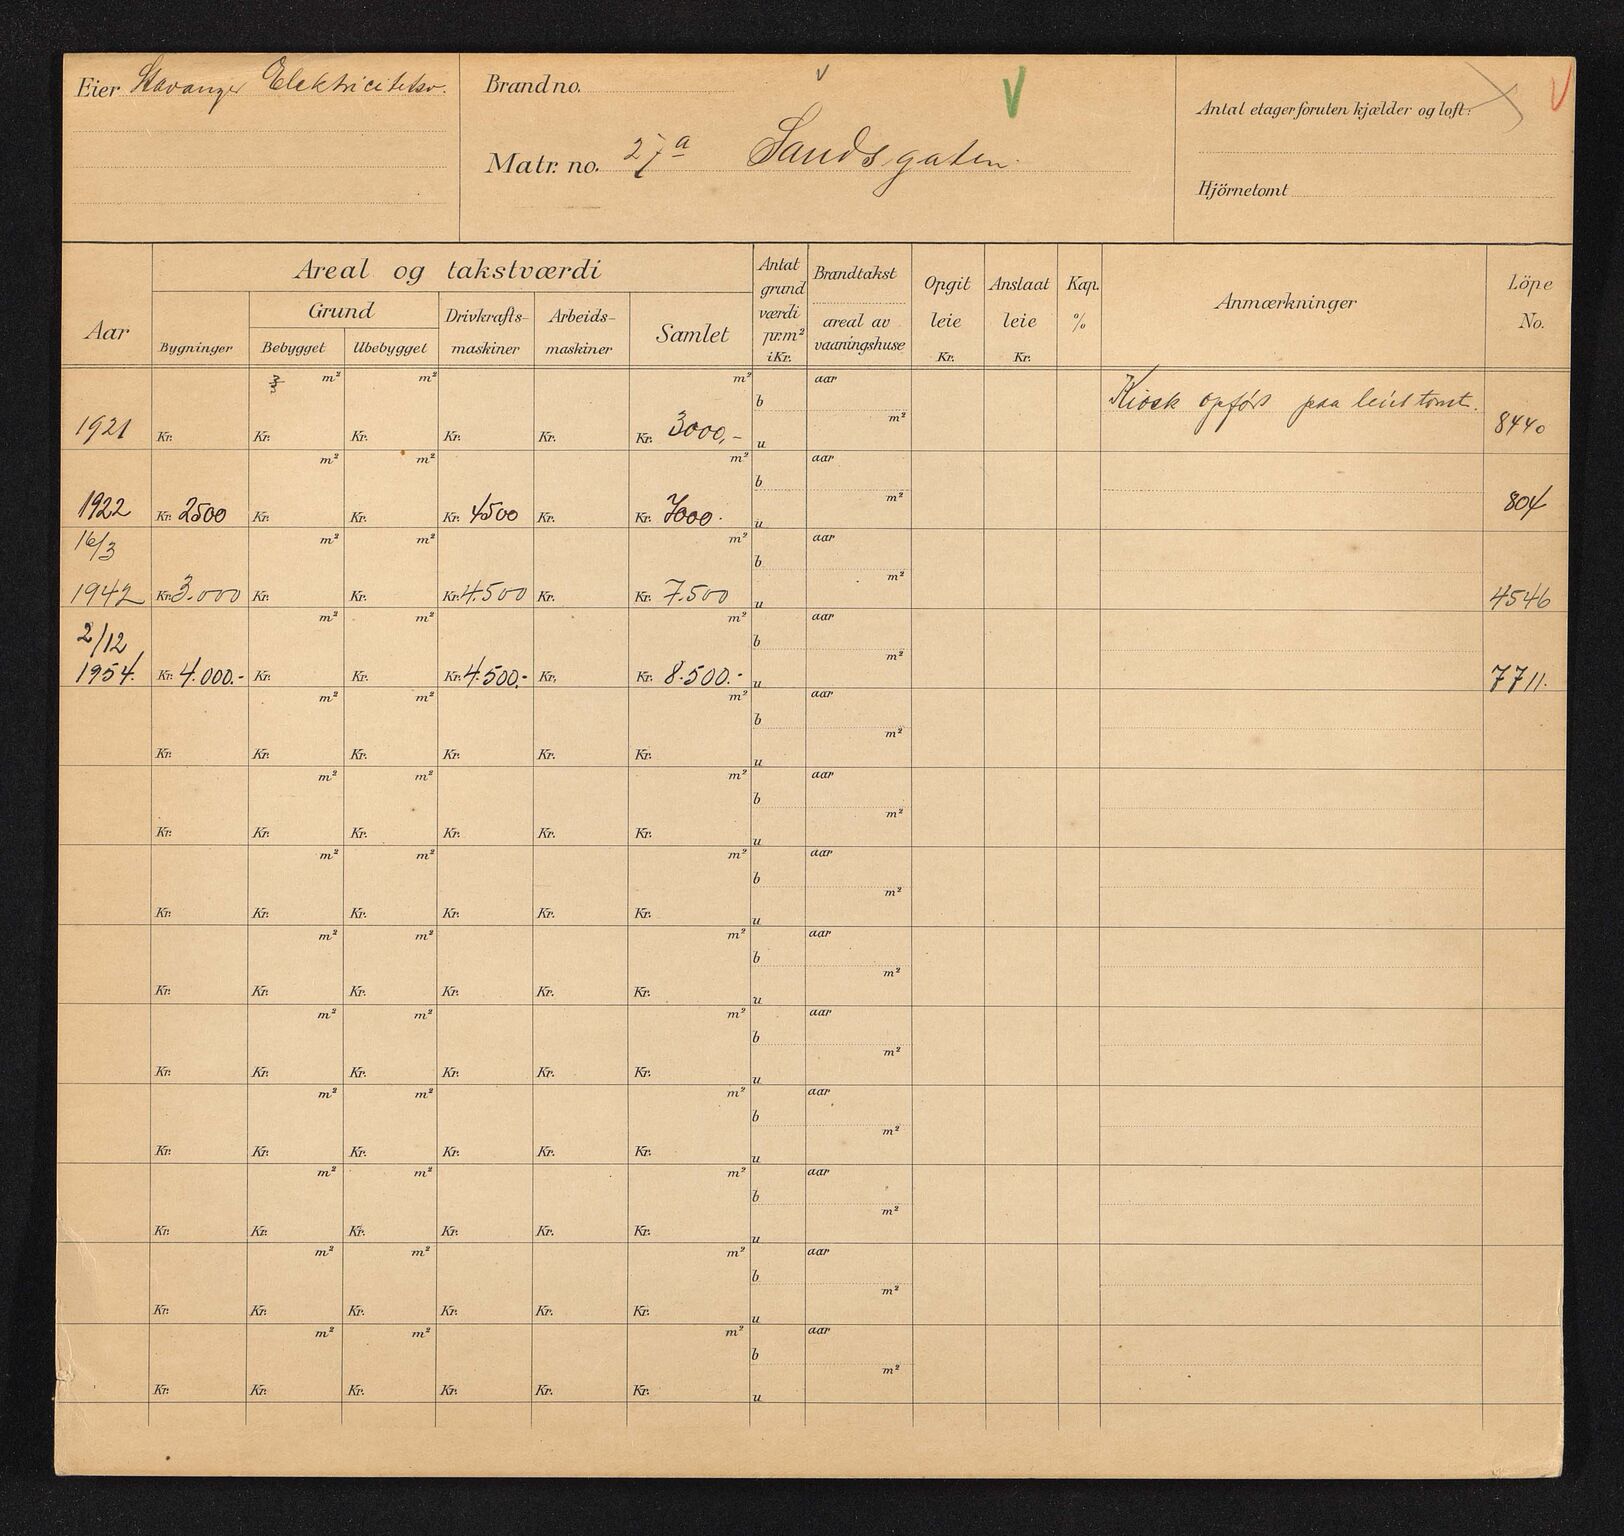 Eier Stavanger Elektricitetsv.
Brand no.
Matr. no. 27a Sandsgaten.
Antal etager foruten kjælder og loft:
Hjörnetomt
Aar
Areal og takstværdi
Grund
Bygninger
Bebygget
Ubebygget
Drivkrafts-
maskiner
Arbeids-
maskiner
Samlet
Antat
grund
værdi
pr.m²
i Kr.
Brandtakst
areal av
vaaningshuse
Opgit
leie
Kr.
Anslaat
leie
Kr.
Kap.
%
Anmærkninger
Löpe
No.
m² m² m² b aar Kiosk opført paa leiet tomt.
m²
1921 Kr. Kr. Kr. Kr. Kr. Kr. 3000,- u 8440
m² m² m² b aar
m²
1922 Kr. 2500 Kr. Kr. Kr. 4500 Kr. Kr. 7000. u 804
16/3 m² m² m² b aar
m²
1942 Kr. 3.000 Kr. Kr. Kr. 4.500 Kr. Kr. 7.500 u 4546
2/12 m² m² m² b aar
m²
1954. Kr. 4.000.- Kr. Kr. Kr. 4.500.- Kr. Kr. 8.500.- u 7711.
m² m² m² b aar
m²
Kr. Kr. Kr. Kr. Kr. Kr. u
m² m² m² b aar
m²
Kr. Kr. Kr. Kr. Kr. Kr. u
m² m² m² b aar
m²
Kr. Kr. Kr. Kr. Kr. Kr. u
m² m² m² b aar
m²
Kr. Kr. Kr. Kr. Kr. Kr. u
m² m² m² b aar
m²
Kr. Kr. Kr. Kr. Kr. Kr. u
m² m² m² b aar
m²
Kr. Kr. Kr. Kr. Kr. Kr. u
m² m² m² b aar
m²
Kr. Kr. Kr. Kr. Kr. Kr. u
m² m² m² b aar
m²
Kr. Kr. Kr. Kr. Kr. Kr. u
m² m² m² b aar
m²
Kr. Kr. Kr. Kr. Kr. Kr. u